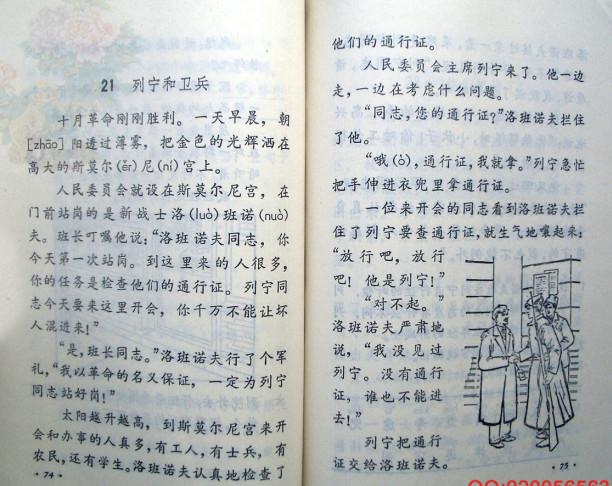 21 列宁和卫兵
十月革命刚刚胜利。一天早晨，朝
[zhāo]阳透过薄雾，把金色的光辉洒在
高大的斯莫尔(ěr)尼(ní)宫上。
人民委员会就设在斯莫尔尼宫，在
门前站岗的是新战士洛(luò)班诺(nuò)
夫。班长叮嘱他说：“洛班诺夫同志，你
今天第一次站岗。到这里来的人很多，
你的任务是检查他们的通行证。列宁同
志今天要来这里开会，你千万不能让坏
人混进来！”
“是，班长同志。”洛班诺夫行了个军
礼，“我以革命的名义保证，一定为列宁
同志站好岗！”
太阳越升越高，到斯莫尔尼宫来开
会和办事的人真多，有工人，有士兵，有
农民，还有学生。洛班诺夫认真地检查了
·74·
他们的通行证。
人民委员会主席列宁来了。他一边
走，一边在考虑什么问题。
“同志，您的通行证？”洛班诺夫拦住
了他。
“哦(ò)，通行证，我就拿。”列宁急忙
把手伸进衣兜里拿通行证。
一位来开会的同志看到洛班诺夫拦
住了列宁要查通行证，就生气地嚷起来：
“放行吧，放行
吧！他是列宁！”
“对不起。”
洛班诺夫严肃地
说，“我没见过
列宁。没有通行
证，谁也不能进
去！”
列宁把通行
证交给洛班诺夫。
·75·